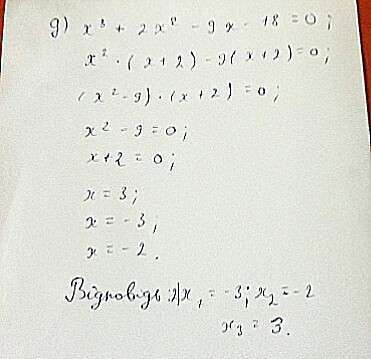 g) x³ + 2x² - 9x - 18 = 0;
x² · (x + 2) - 9(x + 2) = 0;
(x² - 9) · (x + 2) = 0;
x² - 9 = 0;
x + 2 = 0;
x = 3;
x = -3;
x = -2.
Відповідь: x₁ = -3; x₂ = -2
x₃ = 3.